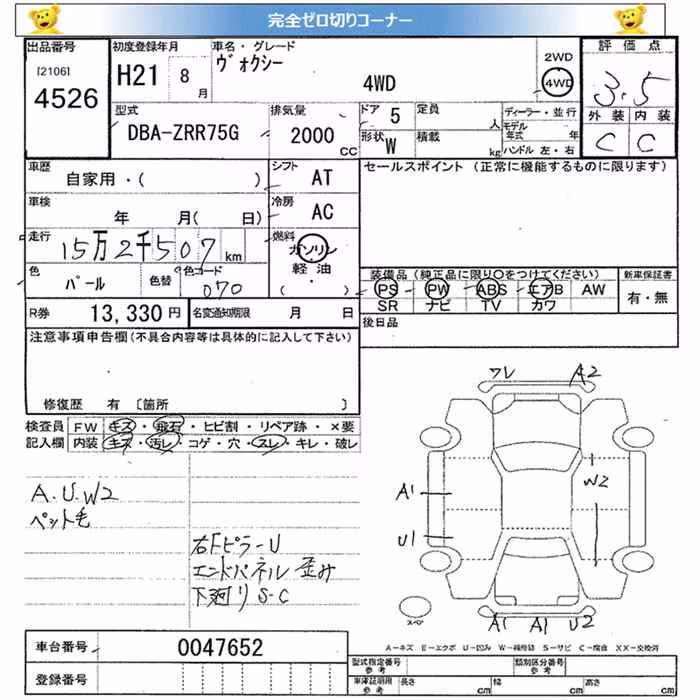 完全ゼロ切りコーナー
出品番号
[2106]
4526
初度登録年月
H21 8月
車名・グレード
ヴォクシー
4WD
2WD
4WD
評価点
3.5
外装 内装
C C
型式
DBA-ZRR75G
排気量
2000 CC
ドア 5
定員 人
形状 W
積載 kg
ディーラー・並行
モデル年式 年
ハンドル 左・右
車歴
自家用・( )
シフト AT
車検
年 月( 日)
冷房 AC
走行
15万2千507 km
燃料
ガソリン
軽油
・
( )
色
パール
色替
色コード
070
R券 13,330円
名変通知期限 月 日
セールスポイント (正常に機能するものに限ります)
装備品 (純正品に限り○をつけてください)
PS PW ABS エアB AW
SR ナビ TV カワ
新車保証書
有・無
後日品
注意事項申告欄(不具合内容等は具体的に記入して下さい)
修復歴 有 〔箇所 〕
検査員記入欄
FW キズ・飛石・ヒビ割・リペア跡・×要
内装 キズ・汚レ・コゲ・穴・スレ・キレ・破レ
A.U.W2
ペット毛
右Fピラー U
エンドパネル 歪み
下廻り S-C
ワレ A2
A1
U1
W2
スペア
A1 A1 U2
A-キズ E-エクボ U-凹み W-補修跡 S-サビ C-腐食 XX-交換済
車台番号 0047652
登録番号
型式指定番号 参考
類別区分番号 参考
車庫証明用 参考
長さ cm 幅 cm 高さ cm